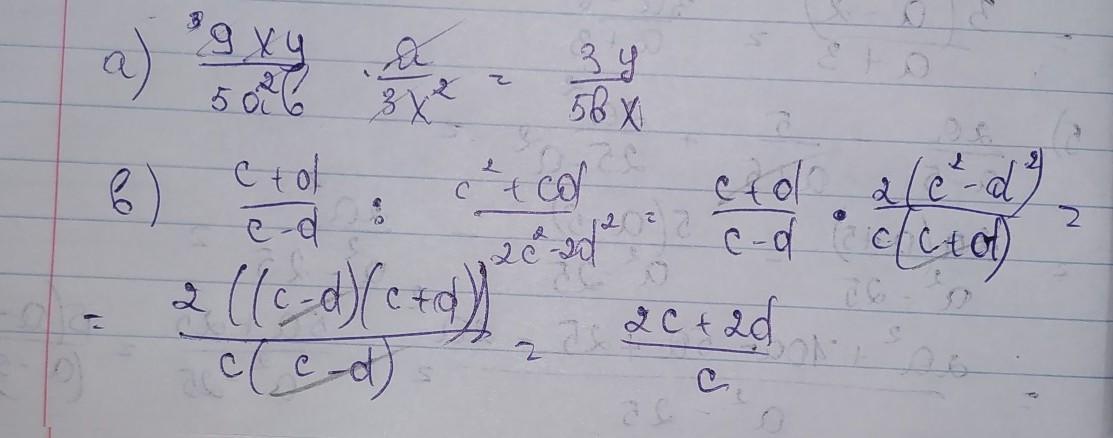 а) 9xy/5a²b · a/3x² = 3y/5bx
в) c+d/c-d : c²+cd/2c²-2d² = c+d/c-d · 2(c²-d²)/c(c+d) =
= 2((c-d)(c+d))/c(c-d) = 2c+2d/c